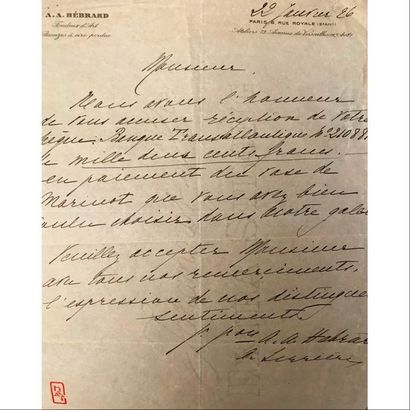 A. A. HÉBRARD
Fondeur d'Art
Bronzes à cire perdue
22 Janvier 26
PARIS, 8, RUE ROYALE (VIIIe ARRt)
Ateliers 73, Avenue de Versailles
Monsieur
Nous avons l'honneur
de vous accuser réception de votre
chèque Banque Transatlantique No 210881
de mille deux cents francs.
en paiement du vase de
Marinot que vous avez bien
voulu choisir dans notre galerie
Veuillez accepter Monsieur
avec tous nos remerciements,
l'expression de nos distingués
sentiments.
A. A. Hébrard